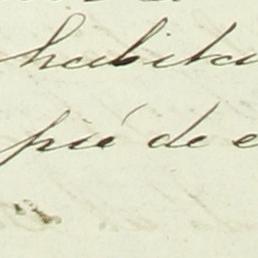 habita
pié de e